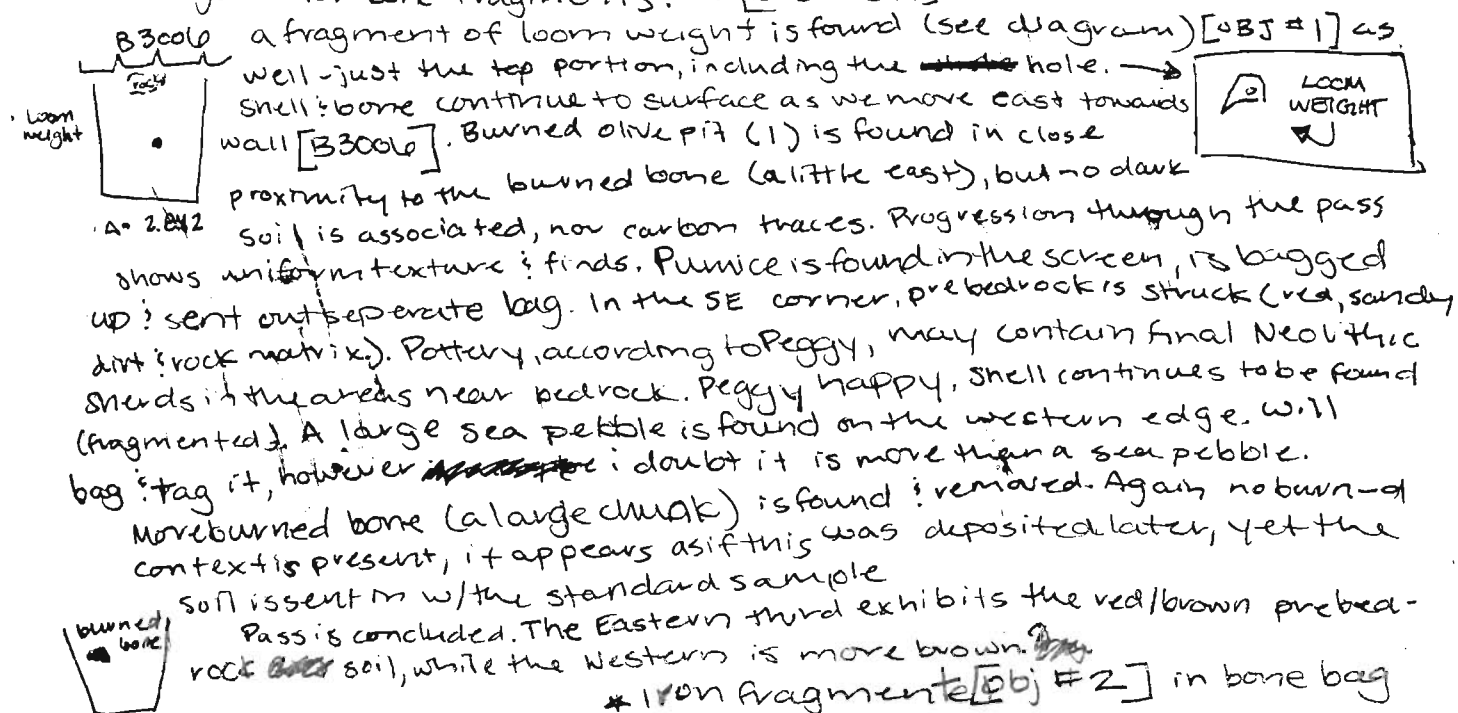 for bone fragments.
B3006
a fragment of loom weight is found (see diagram) [OBJ #1] as
rocks
well - just the top portion, including the hole. →
LOOM
WEIGHT
Loom
weight
shell & bone continue to surface as we move east towards
wall [B3006]. Burned olive pit (1) is found in close
proximity to the burned bone (a little east), but no dark
soil is associated, nor carbon traces. Progression through the pass
shows uniform texture & finds. Pumice is found in the screen, is bagged
up & sent out seperate bag. In the SE corner, prebedrock is struck (red, sandy
dirt & rock matrix). Pottery, according to Peggy, may contain final Neolithic
sherds in the areas near bedrock. Peggy happy, shell continues to be found
(fragmented). A large sea pebble is found on the western edge. Will
bag & tag it, however i doubt it is more than a sea pebble.
More burned bone (a large chunk) is found & removed. Again no burn-d
context is present, it appears as if this was deposited later, yet the
soil is sent in w/ the standard sample
burned
bone
Pass is concluded. The Eastern third exhibits the red/brown prebed-
rock soil, while the Western is more brown.
* Iron fragment [obj #2] in bone bag